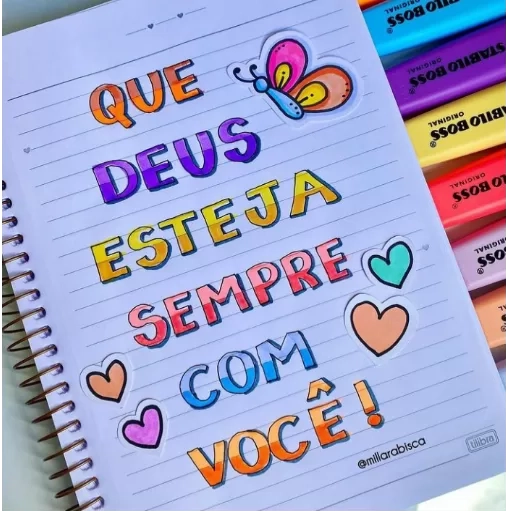 QUE
DEUS
ESTEJA
SEMPRE
COM
VOCÊ!
@millarabisca
tilibra
STABILO BOSS
ORIGINAL
STABILO BOSS
ORIGINAL
STABILO BOSS
ORIGINAL
STABILO BOSS
ORIGINAL
STABILO BOSS
ORIGINAL
STABILO BOSS
ORIGINAL